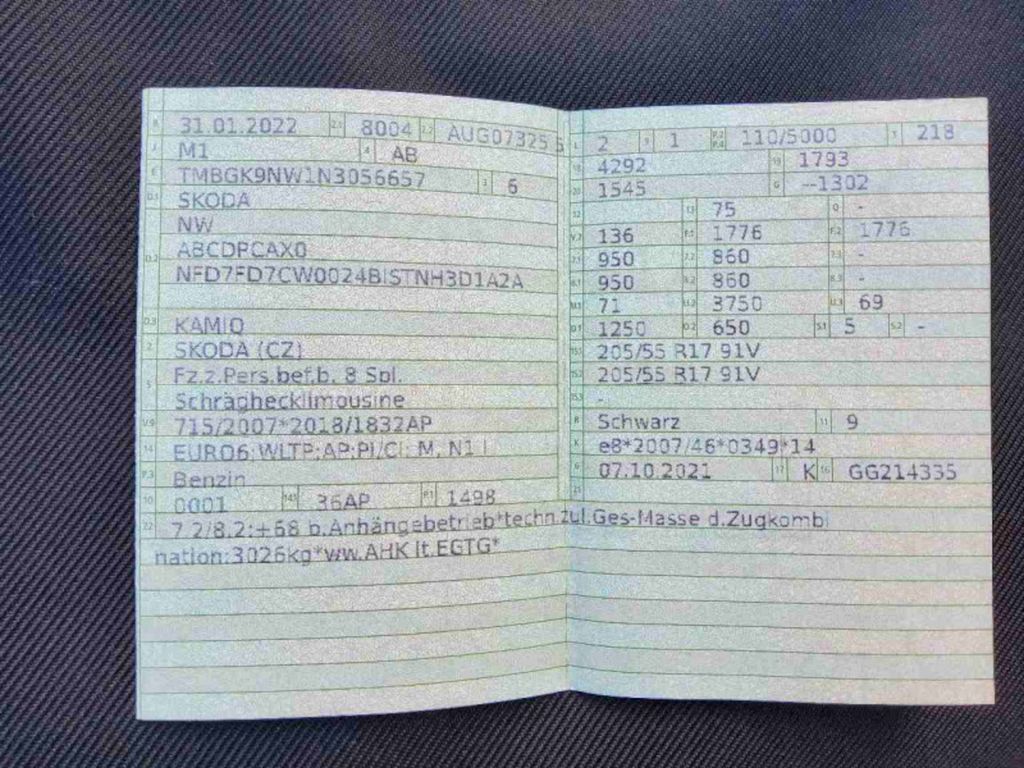 31.01.2022 8004 AUG07325 5
M1 AB
TMBGK9NW1N3056657 6
SKODA
NW
ABCDPCAX0
NFD7FD7CW0024BISTNH3D1A2A
KAMIQ
SKODA (CZ)
Fz.z.Pers.bef.b. 8 Spl.
Schräghecklimousine
715/2007*2018/1832AP
EURO6;WLTP;AP;PI/CI; M, N1 I
Benzin
0001 36AP 1498
7.2/8.2:+68 b.Anhängebetrieb*techn.zul.Ges-Masse d.Zugkombi
nation:3026kg*ww.AHK lt.EGTG*
2 1 110/5000 218
4292 1793
1545 --1302
75 -
136 1776 1776
950 860 -
950 860 -
71 3750 69
1250 650 5 -
205/55 R17 91V
205/55 R17 91V
-
Schwarz 9
e8*2007/46*0349*14
07.10.2021 K GG214335